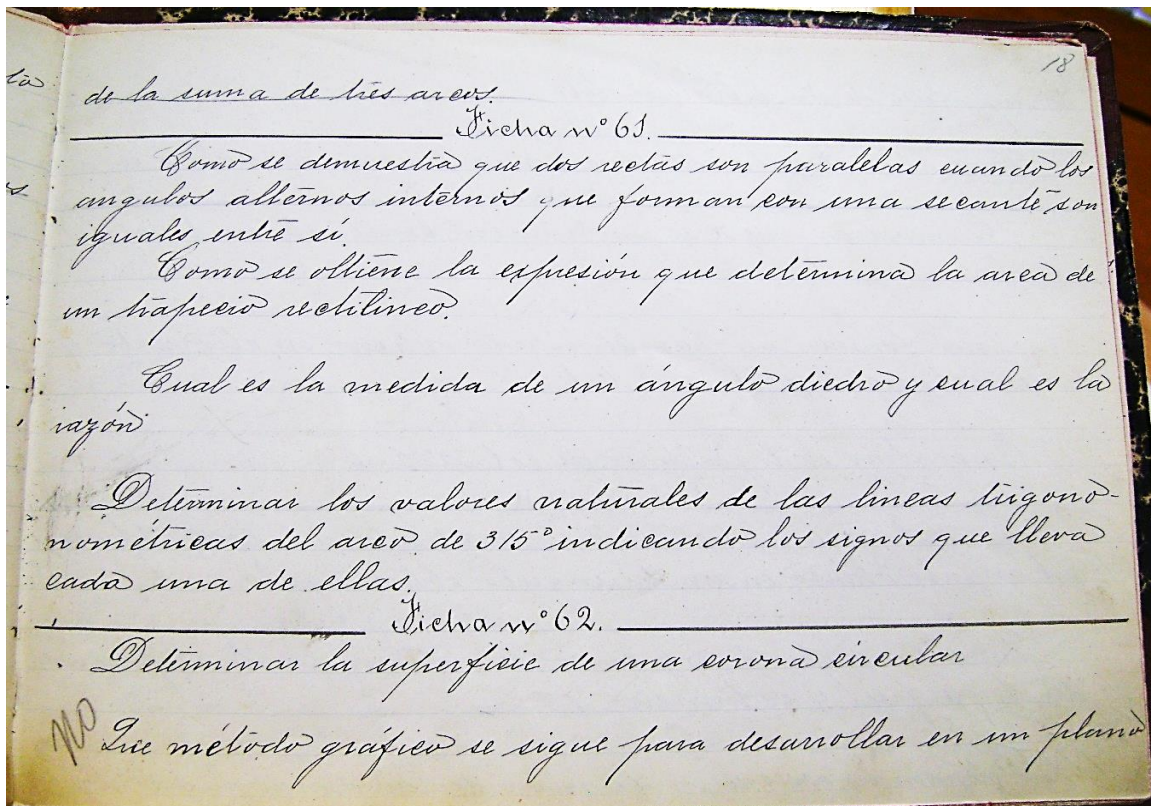 18
de la suma de tres arcos.
Ficha nº 61.
Como se demuestra que dos rectas son paralelas cuando los
angulos alternos internos que forman con una secante son
iguales entre sí.
Como se obtiene la espresión que determina la area de
un trapecio rectilineo.
Cual es la medida de un ángulo diedro y cual es la
razón
Determinar los valores naturales de las lineas trigono-
nométricas del arco de 315° indicando los signos que lleva
cada una de ellas.
Ficha nº 62.
Determinar la superficie de una corona circular
NO
Que método gráfico se sigue para desarrollar en un plano